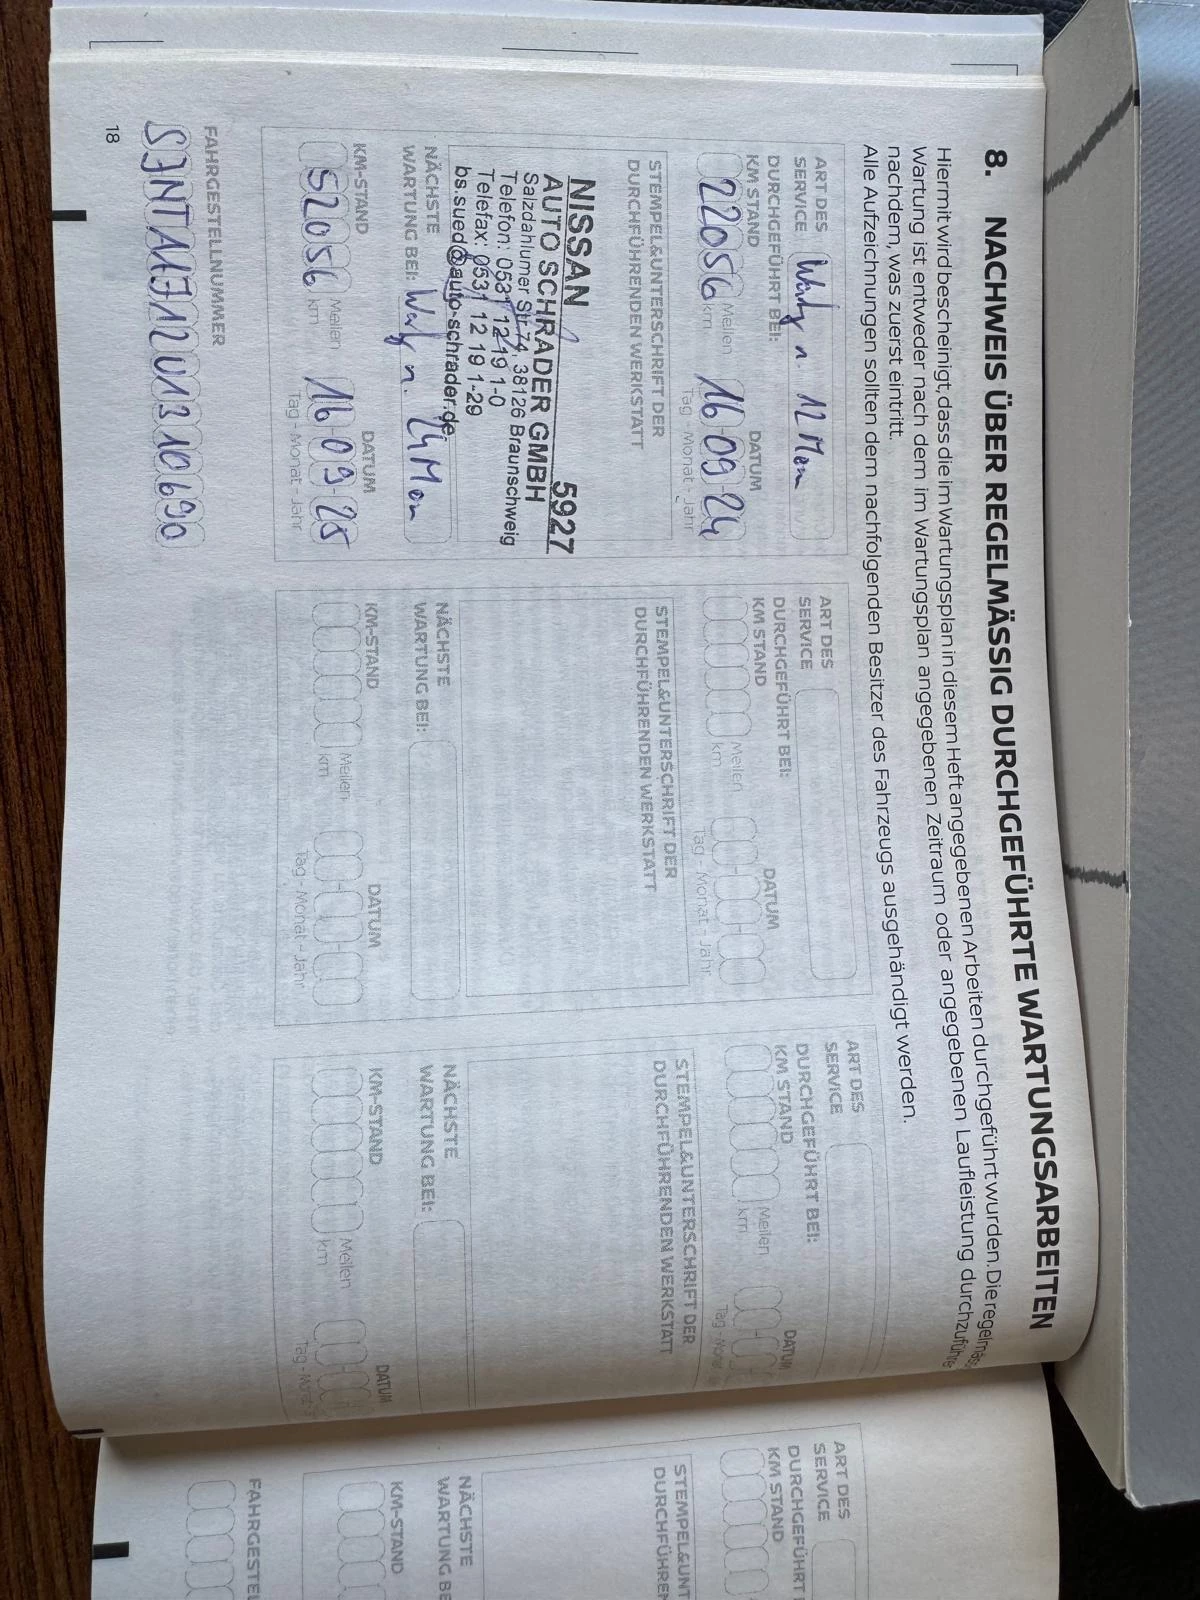 8. NACHWEIS ÜBER REGELMÄSSIG DURCHGEFÜHRTE WARTUNGSARBEITEN
Hiermit wird bescheinigt, dass die im Wartungsplan in diesem Heft angegebenen Arbeiten durchgeführt wurden. Die regelmäss
Wartung ist entweder nach dem im Wartungsplan angegebenen Zeitraum oder angegebenen Laufleistung durchzuführe
nachdem, was zuerst eintritt.
Alle Aufzeichnungen sollten dem nachfolgenden Besitzer des Fahrzeugs ausgehändigt werden.
ART DES
SERVICE
n. 12 Mon
DURCHGEFÜHRT BEI:
KM STAND
DATUM
22056
Meilen
km
16-09-24
Tag - Monat - Jahr
STEMPEL&UNTERSCHRIFT DER
DURCHFÜHRENDEN WERKSTATT
NISSAN 5927
AUTO SCHRADER GMBH
Salzdahlumer Str. 74, 38126 Braunschweig
Telefon: 0531 12 19 1-0
Telefax: 0531 12 19 1-29
bs.sued@auto-schrader.de
NÄCHSTE
WARTUNG BEI:
n. 24 Mon
KM-STAND
DATUM
52056
Meilen
km
16-09-25
Tag - Monat - Jahr
ART DES
SERVICE
DURCHGEFÜHRT BEI:
KM STAND
DATUM
Meilen
km
Tag - Monat - Jahr
STEMPEL&UNTERSCHRIFT DER
DURCHFÜHRENDEN WERKSTATT
NÄCHSTE
WARTUNG BEI:
KM-STAND
DATUM
Meilen
km
Tag - Monat - Jahr
ART DES
SERVICE
DURCHGEFÜHRT BEI:
KM STAND
DATUM
Meilen
km
Tag - Monat
STEMPEL&UNTERSCHRIFT DER
DURCHFÜHRENDEN WERKSTATT
NÄCHSTE
WARTUNG BEI:
KM-STAND
DATUM
Meilen
km
Tag - Monat
FAHRGESTELLNUMMER
SJNTAAJ12U1310690
18
ART DES
SERVICE
DURCHGEFÜHRT
KM STAND
STEMPEL&UNT
DURCHFÜHREN
NÄCHSTE
WARTUNG BE
KM-STAND
FAHRGESTEL